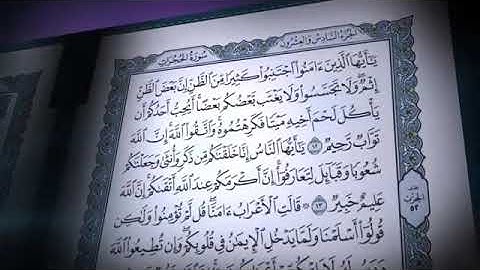 سُورَةُ الحُجُرَاتِ
الجُزْءُ السَّادِسُ وَالعِشْرُونَ
يَٰٓأَيُّهَا ٱلَّذِينَ ءَامَنُوا۟ ٱجْتَنِبُوا۟ كَثِيرًا مِّنَ ٱلظَّنِّ إِنَّ بَعْضَ ٱلظَّنِّ
إِثْمٌ ۖ وَلَا تَجَسَّسُوا۟ وَلَا يَغْتَب بَّعْضُكُم بَعْضًا ۚ أَيُحِبُّ أَحَدُكُمْ أَن
يَأْكُلَ لَحْمَ أَخِيهِ مَيْتًا فَكَرِهْتُمُوهُ ۚ وَٱتَّقُوا۟ ٱللَّهَ ۚ إِنَّ ٱللَّهَ
تَوَّابٌ رَّحِيمٌ ١٢ يَٰٓأَيُّهَا ٱلنَّاسُ إِنَّا خَلَقْنَٰكُم مِّن ذَكَرٍ وَأُنثَىٰ وَجَعَلْنَٰكُمْ
شُعُوبًا وَقَبَآئِلَ لِتَعَارَفُوٓا۟ ۚ إِنَّ أَكْرَمَكُمْ عِندَ ٱللَّهِ أَتْقَىٰكُمْ ۚ إِنَّ ٱللَّهَ
عَلِيمٌ خَبِيرٌ ١٣ قَالَتِ ٱلْأَعْرَابُ ءَامَنَّا ۖ قُل لَّمْ تُؤْمِنُوا۟ وَلَٰكِن
قُولُوٓا۟ أَسْلَمْنَا وَلَمَّا يَدْخُلِ ٱلْإِيمَٰنُ فِى قُلُوبِكُمْ ۖ وَإِن تُطِيعُوا۟ ٱللَّهَ
الحزب
٥٢